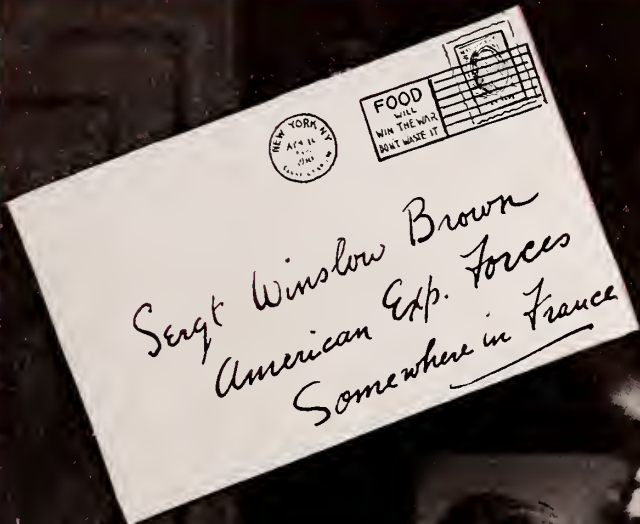 NEW YORK, N.Y.
FOOD
WILL
WIN THE WAR
DON'T WASTE IT
Sergt Winslow Brown
American Exp. Forces
Somewhere in France